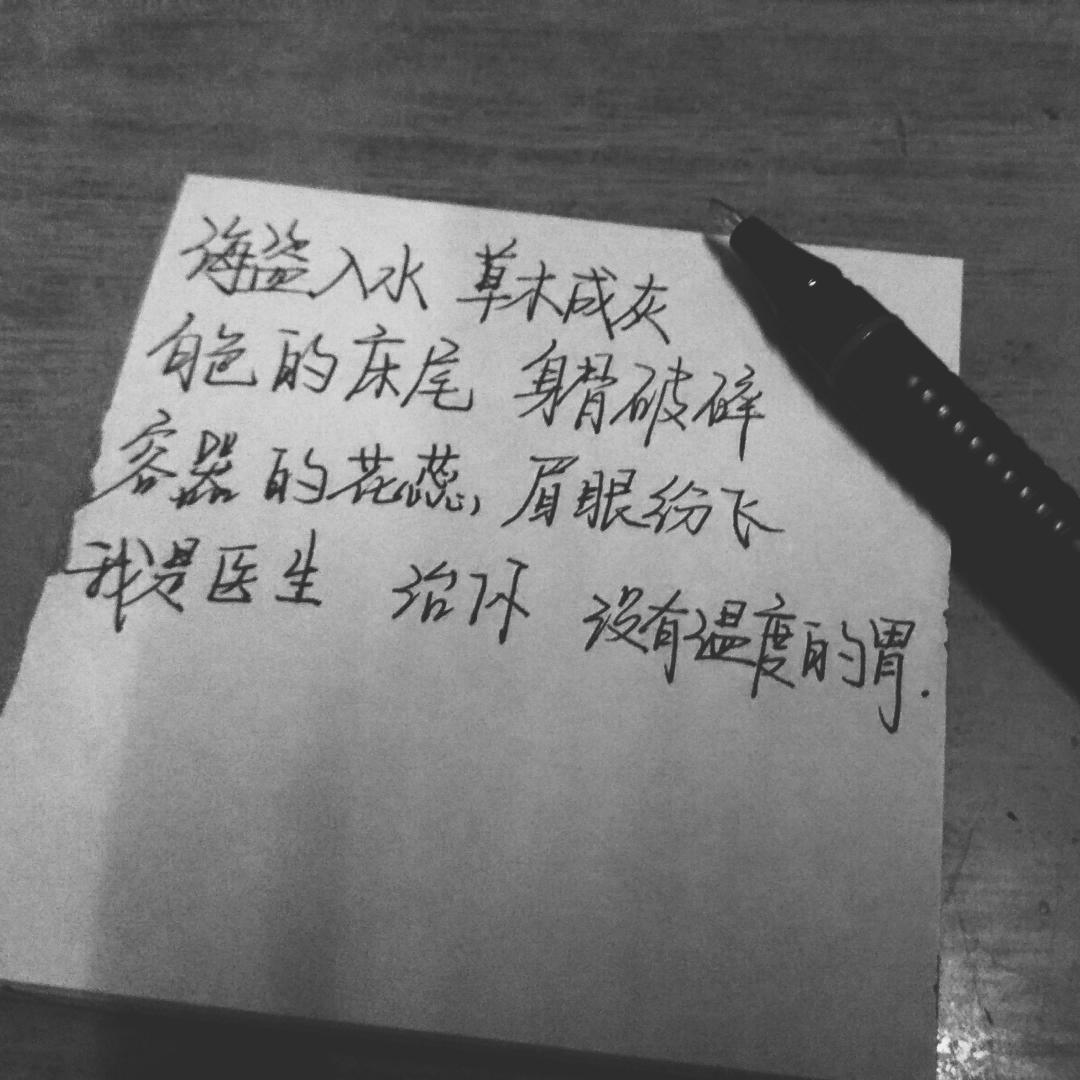 海盗入水 草木成灰
白色的床尾 身骨破碎
容器的花蕊, 眉眼纷飞
我是医生 治不 没有温度的胃.